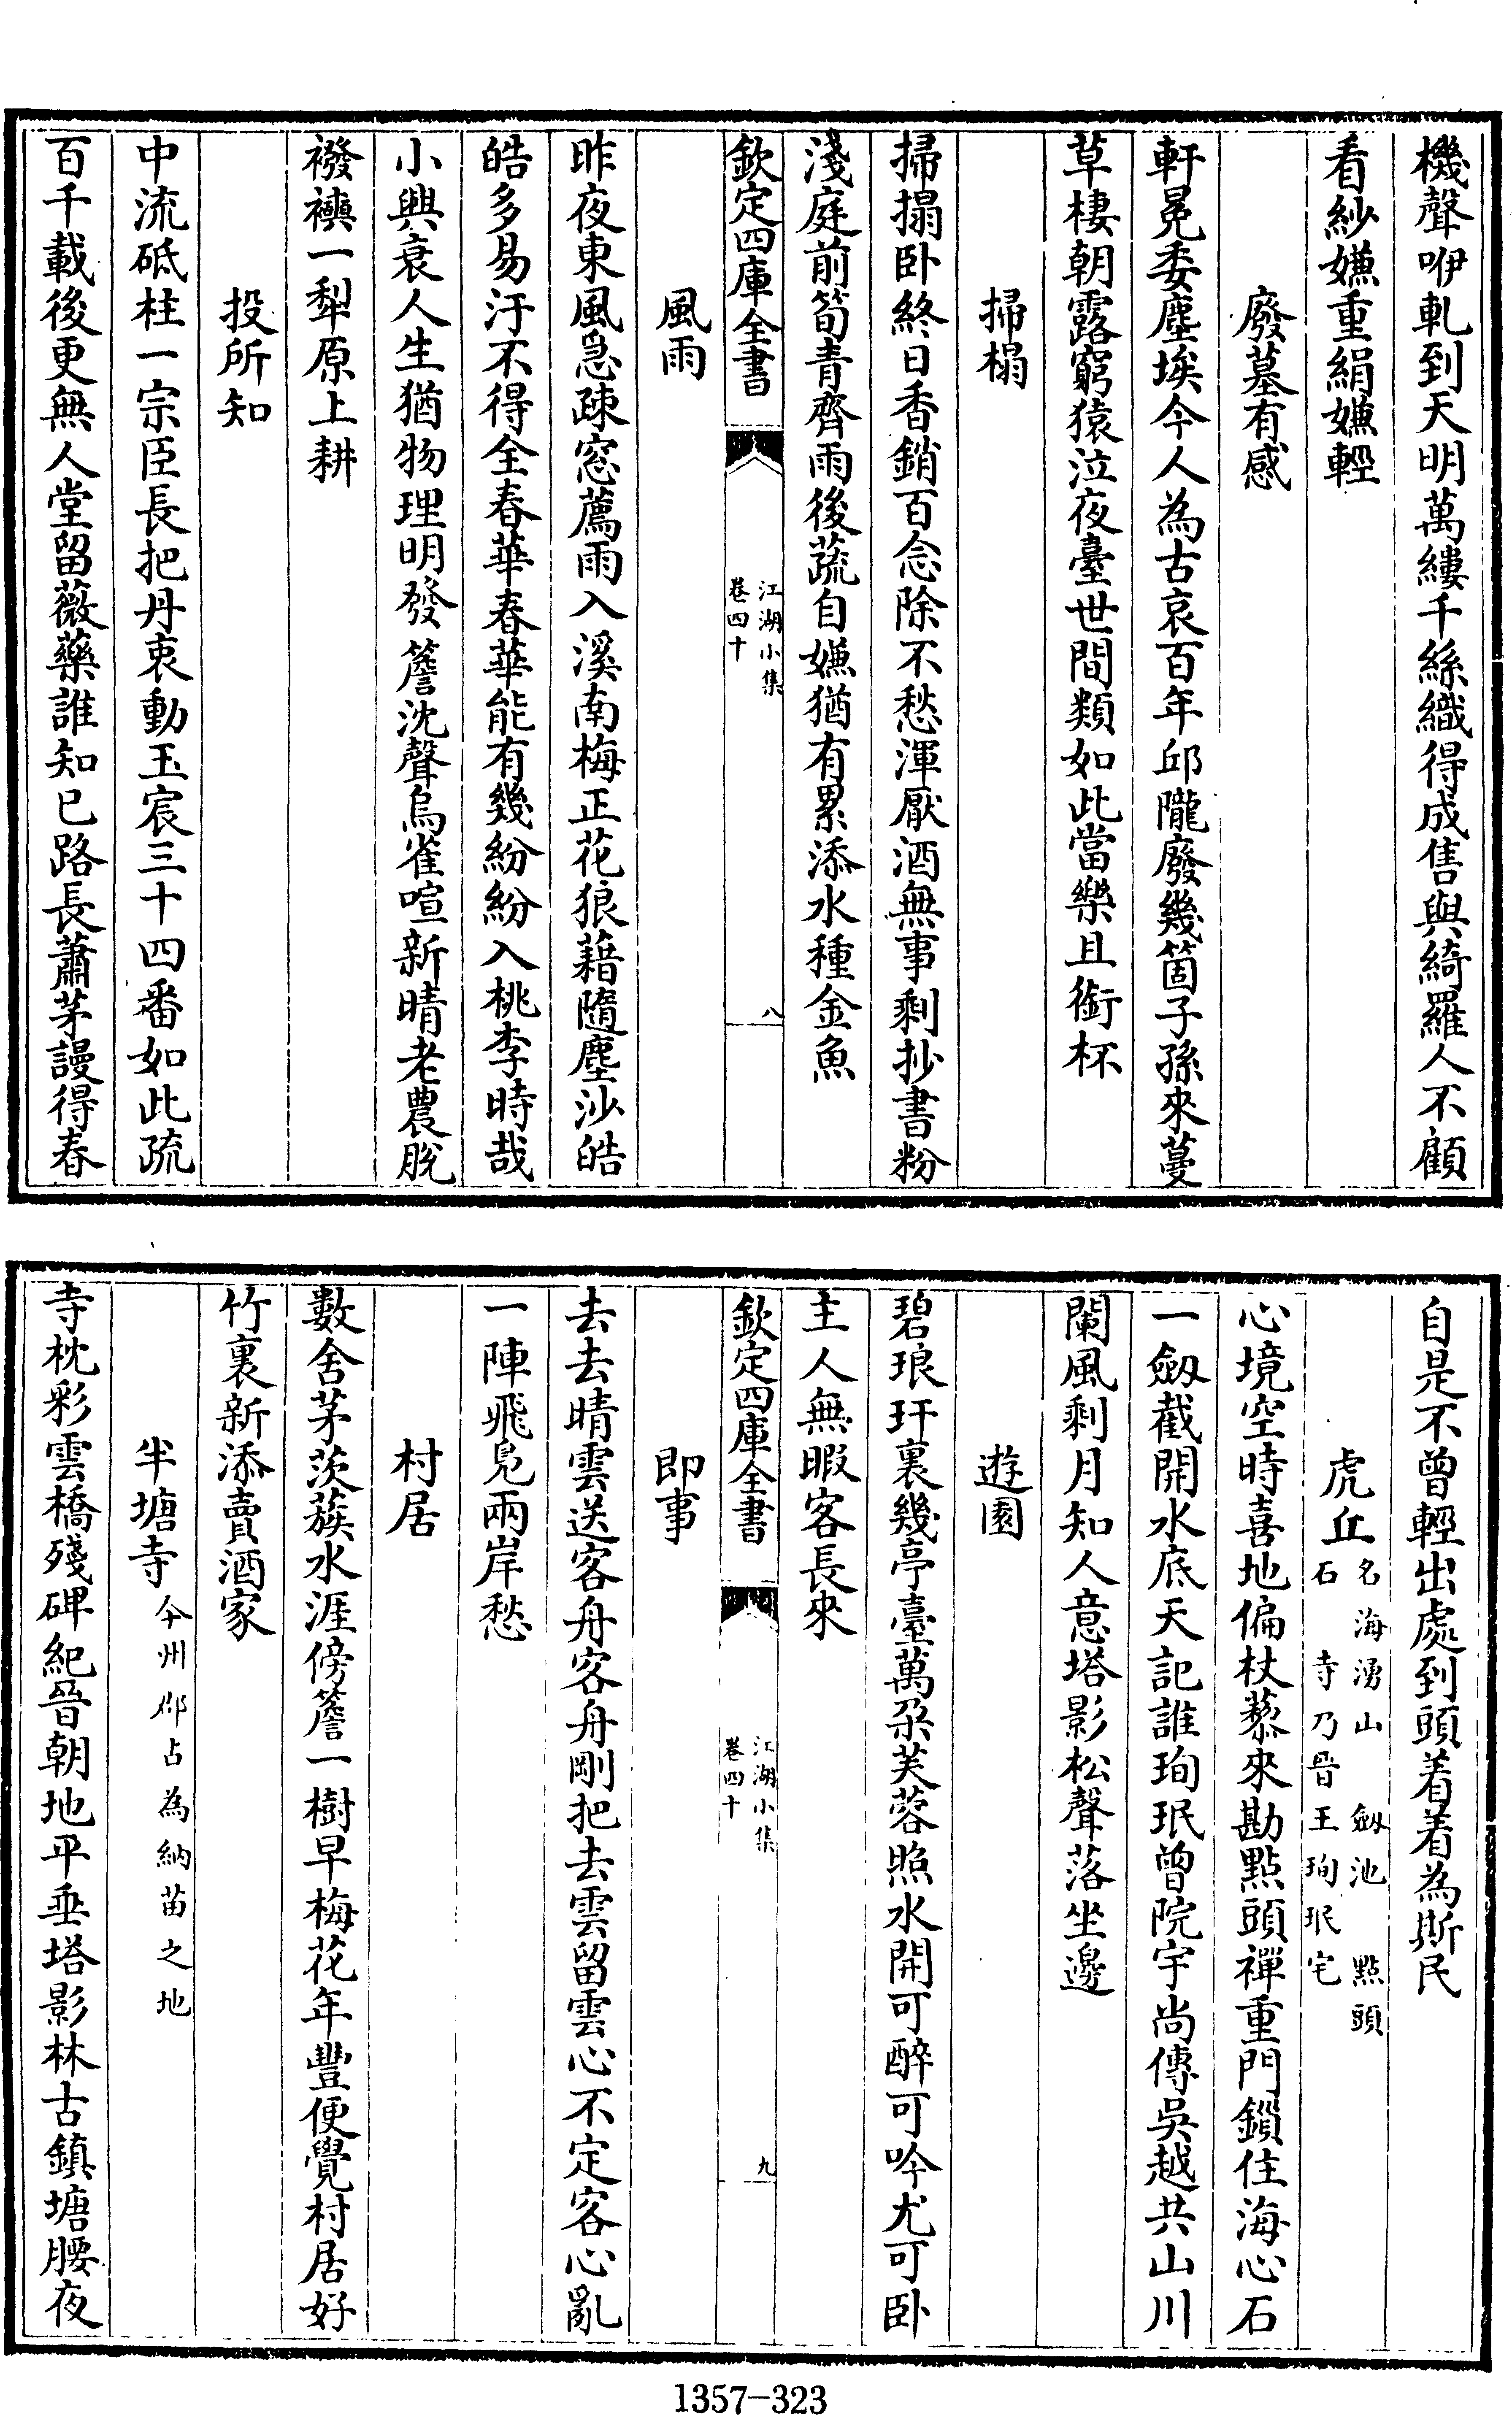 機聲咿軋到天明萬縷千絲織得成售與綺羅人不顧
看紗嫌重絹嫌輕
廢墓有感
軒冕委塵埃今人為古哀百年邱隴廢幾箇子孫來蔓
草棲朝露窮猿泣夜臺世間類如此當樂且銜杯
掃榻
掃搨卧終日香銷百念除不愁渾厭酒無事剩抄書粉
淺庭前筍青齊雨後蔬自嫌猶有累添水種金魚
欽定四庫全書
江湖小集
卷四十
八
風雨
昨夜東風急疎窓薦雨入溪南梅正花狼藉隨塵沙皓
皓多易汙不得全春華春華能有幾紛紛入桃李時哉
小興衰人生猶物理明發簷沈聲烏雀喧新晴老農脫
襏襫一犁原上耕
投所知
中流砥柱一宗臣長把丹衷動玉宸三十四番如此疏
百千載後更無人堂留薇藥誰知已路長蕭茅謾得春
自是不曾輕出處到頭着着為斯民
虎丘
名海湧山 劔池 點頭
石 寺乃晉王珣珉宅
心境空時喜地偏杖藜來勘點頭禪重門鎖住海心石
一劔截開水底天記誰珣珉曾院宇尚傳吳越共山川
闌風剩月知人意塔影松聲落坐邊
遊園
碧琅玕裏幾亭臺萬朶芙蓉照水開可醉可吟尤可卧
主人無暇客長來
欽定四庫全書
江湖小集
卷四十
九
即事
去去晴雲送客舟客舟剛把去雲留雲心不定客心亂
一陣飛鳬兩岸愁
村居
數舍茅茨蔟水涯傍簷一樹早梅花年豐便覺村居好
竹裏新添賣酒家
半塘寺
今州郡占為納苗之地
寺枕彩雲橋殘碑紀晉朝地平垂塔影林古鎮塘腰夜
1357-323